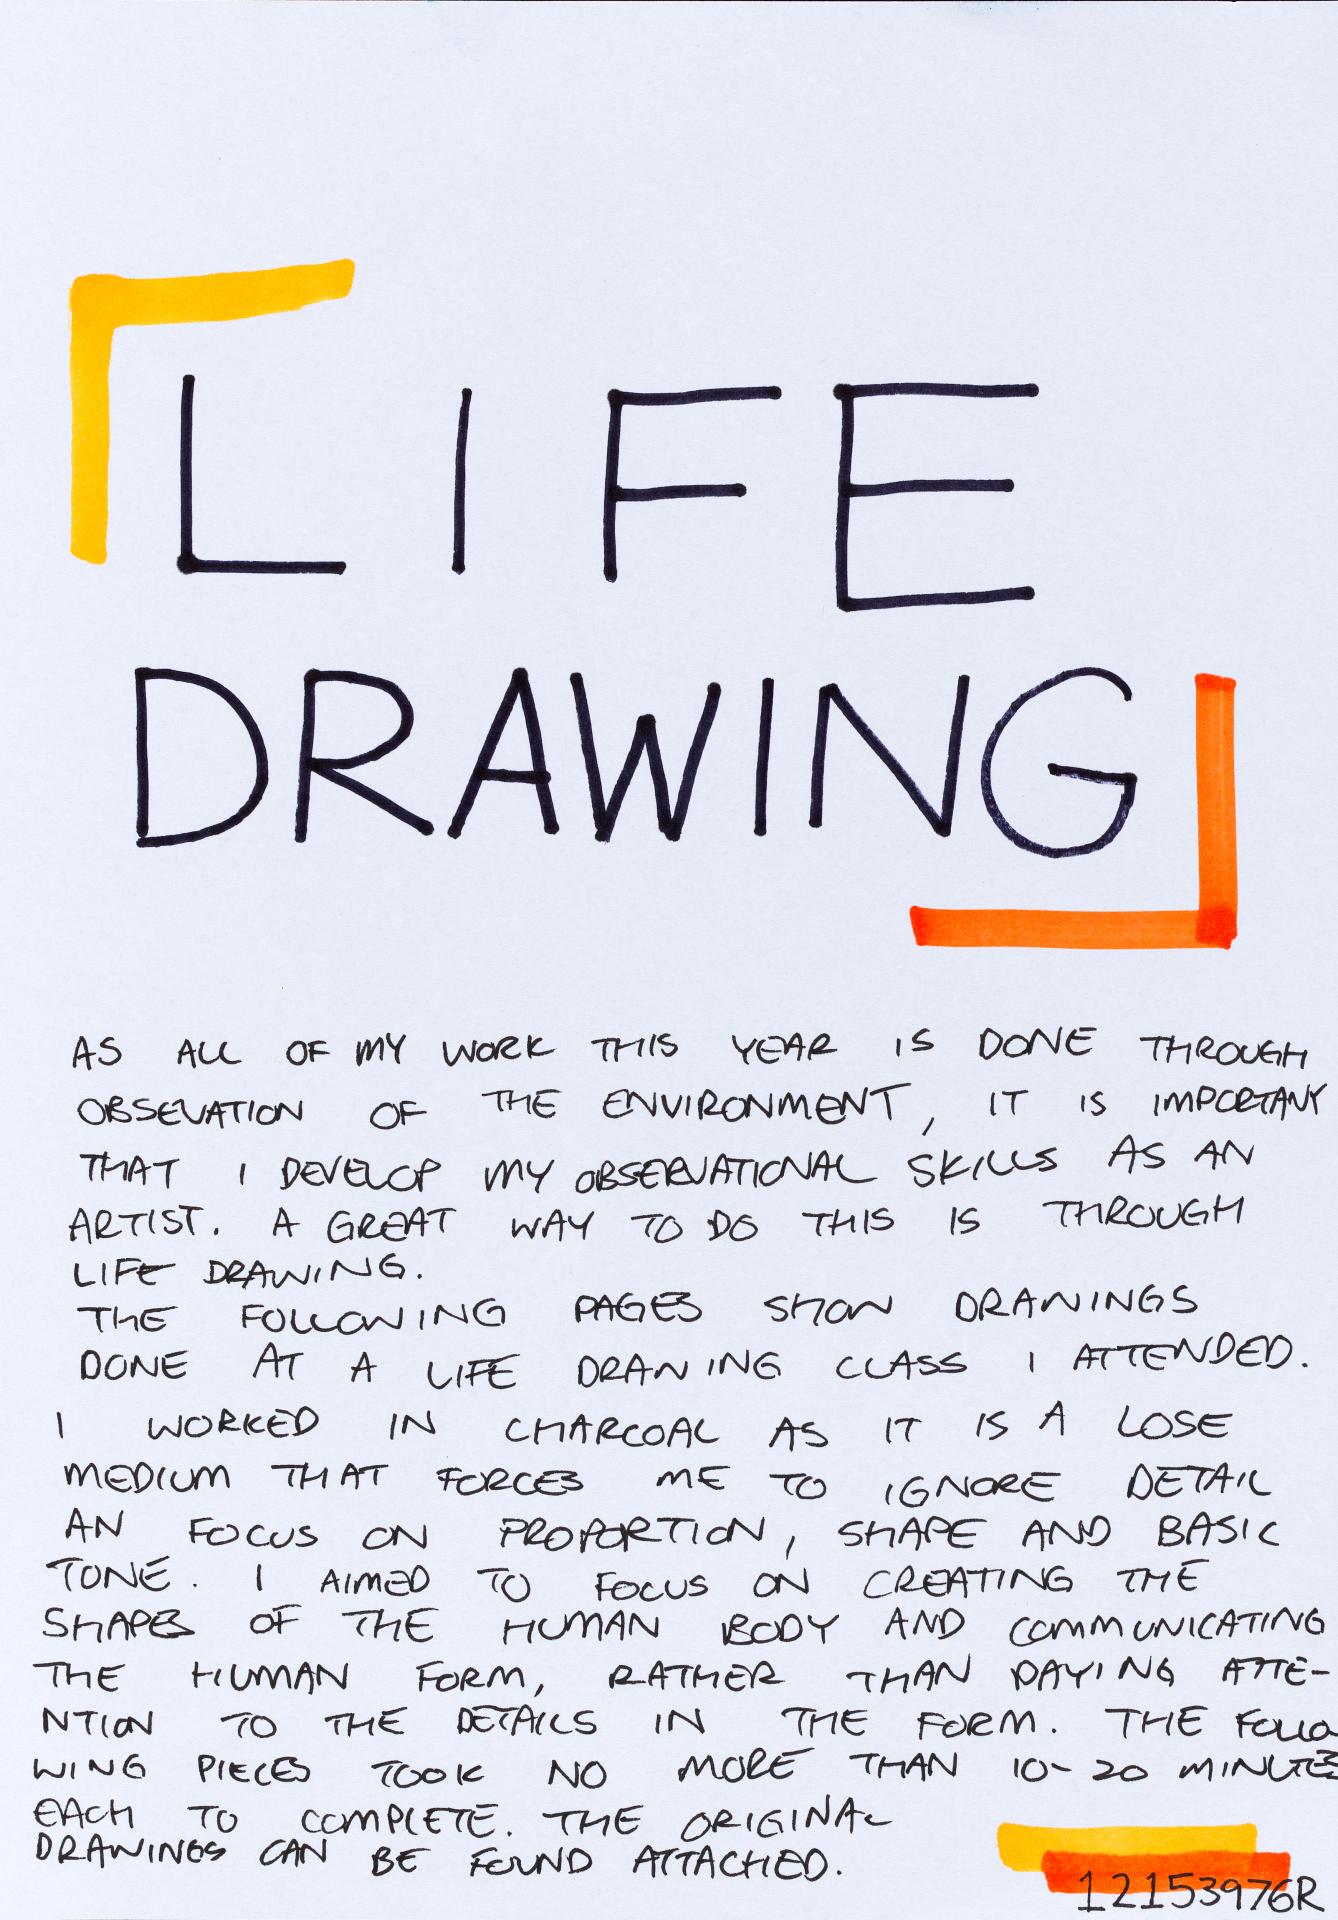 LIFE
DRAWING
AS ALL OF MY WORK THIS YEAR IS DONE THROUGH
OBSEVATION OF THE ENVIRONMENT, IT IS IMPORTANT
THAT I DEVELOP MY OBSERVATIONAL SKILLS AS AN
ARTIST. A GREAT WAY TO DO THIS IS THROUGH
LIFE DRAWING.
THE FOLLOWING PAGES SHOW DRAWINGS
DONE AT A LIFE DRAWING CLASS I ATTENDED.
I WORKED IN CHARCOAL AS IT IS A LOSE
MEDIUM THAT FORCES ME TO IGNORE DETAIL
AN FOCUS ON PROPORTION, SHAPE AND BASIC
TONE. I AIMED TO FOCUS ON CREATING THE
SHAPES OF THE HUMAN BODY AND COMMUNICATING
THE HUMAN FORM, RATHER THAN PAYING ATTE-
NTION TO THE DETAILS IN THE FORM. THE FOLLO
WING PIECES TOOK NO MORE THAN 10-20 MINUTES
EACH TO COMPLETE. THE ORIGINAL
DRAWINGS CAN BE FOUND ATTACHED.
12153976R